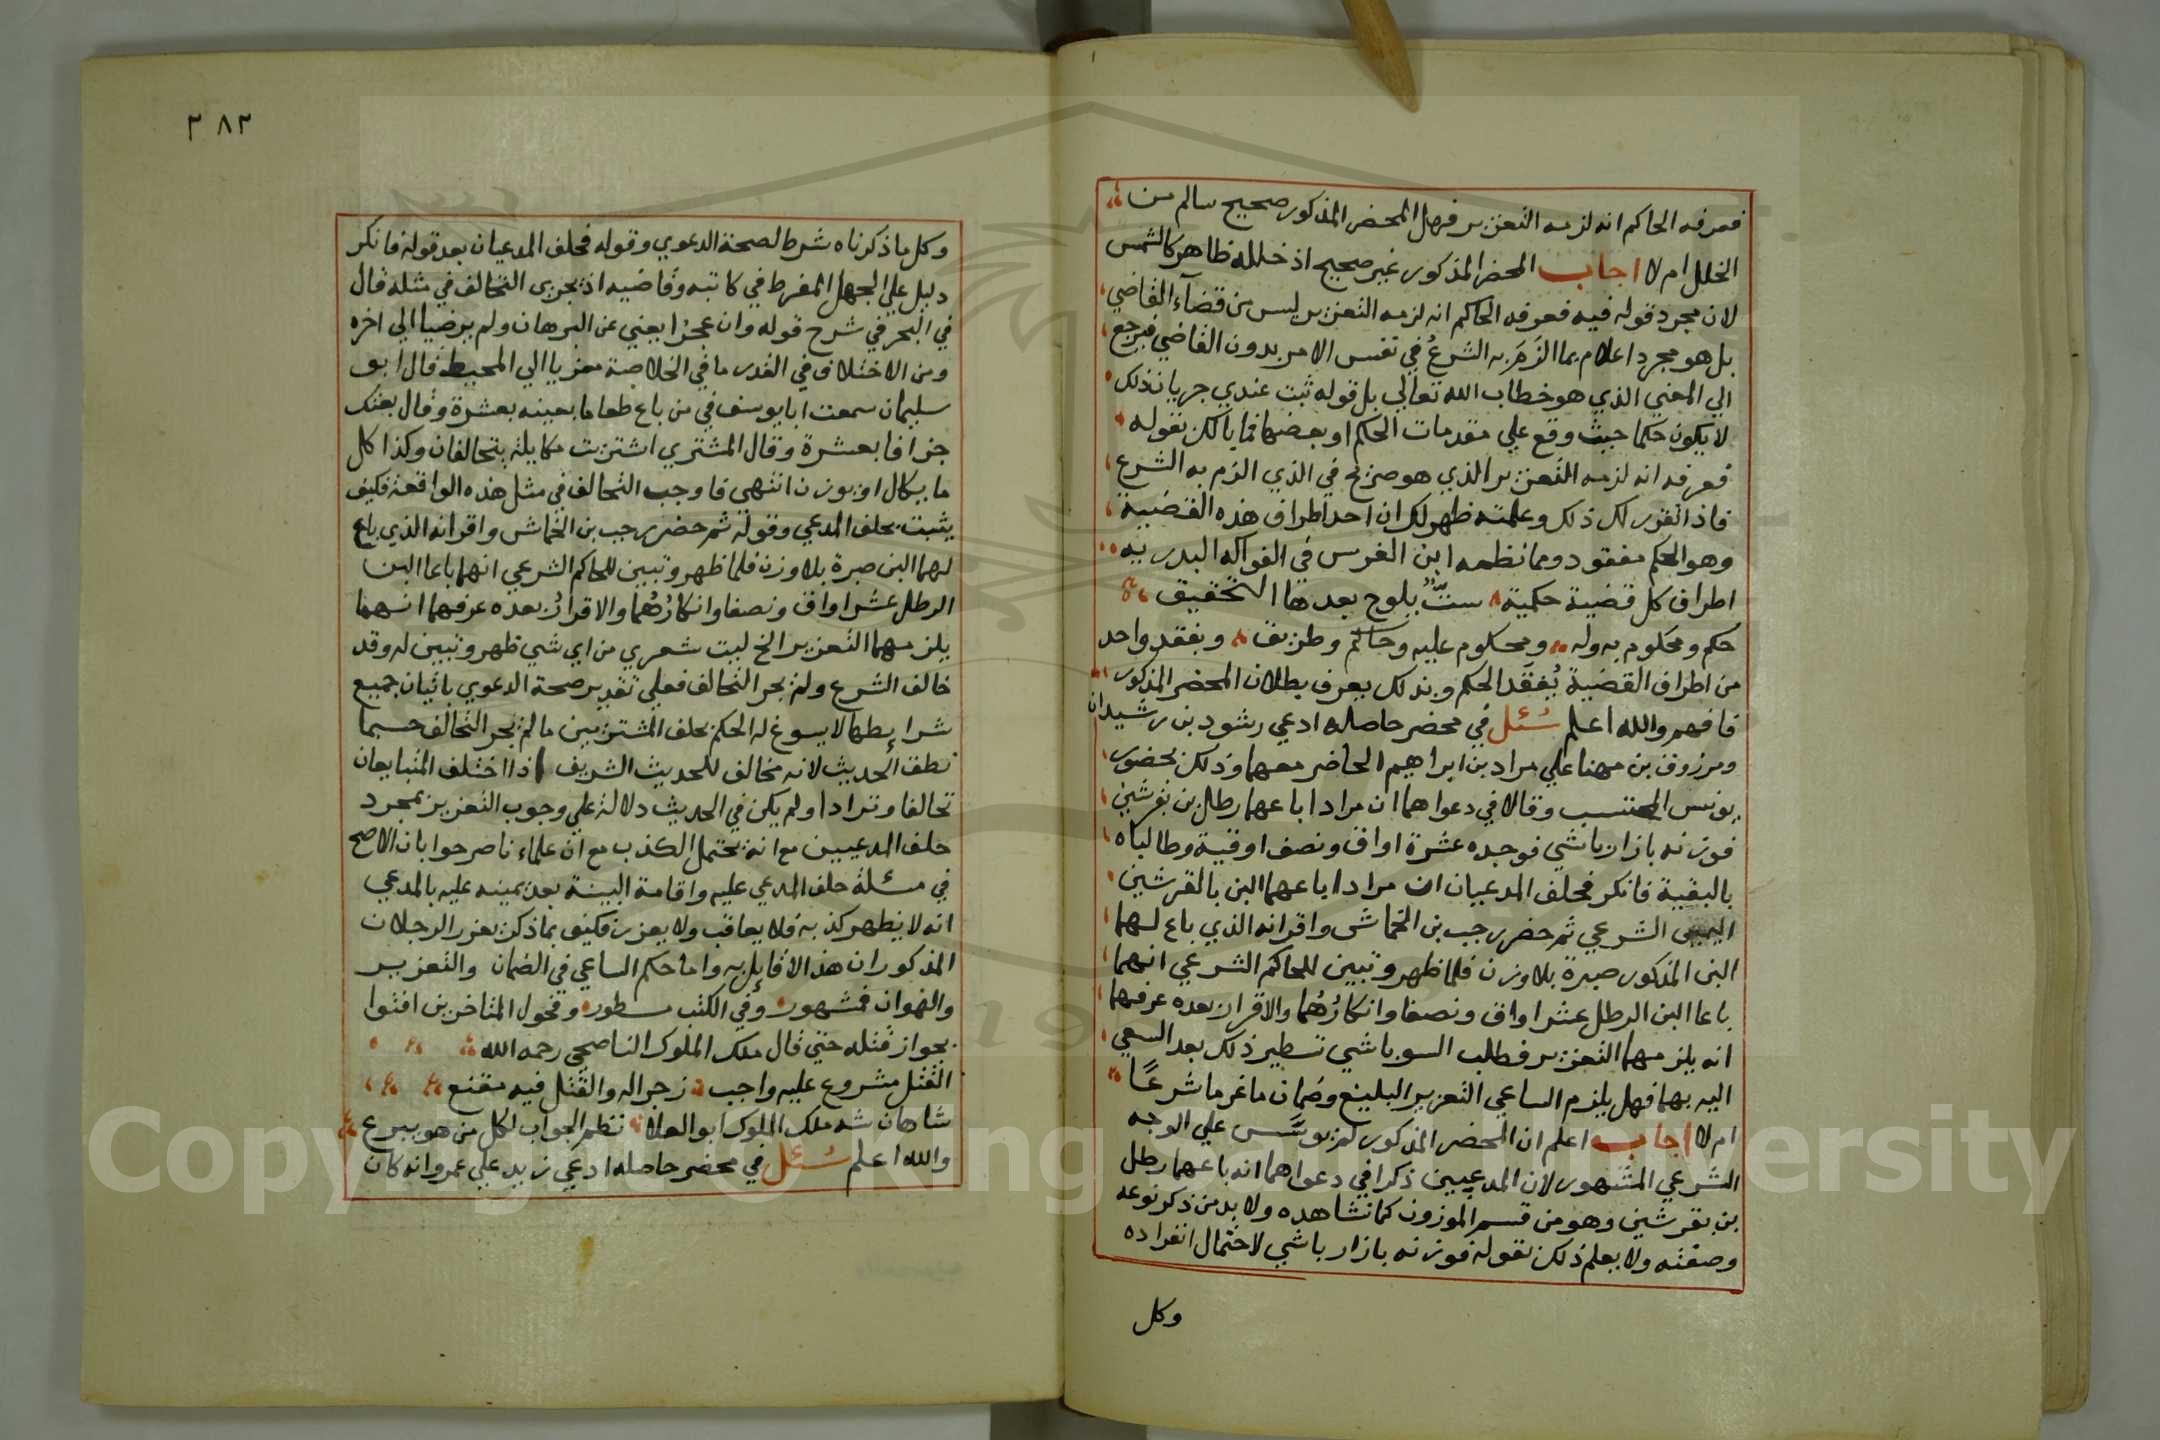 فعرفه الحاكم انه لزمه التعزير فهل المحضر المذكور صحيح سالم من
الخلل ام لا اجاب المحضر المذكور غير صحيح اذ خلله ظاهر كالشمس
لان مجرد قوله فيه فعرفه الحاكم انه لزمه التعزير ليس من قضآء القاضي
بل هو مجرد اعلام بما الزَمَ به الشرعُ في نفس الامر بدون القاضي فيرجع
الي المعني الذي هو خطاب الله تعالي بل قوله ثبت عندي جريان ذلك
لا يكون حكما حيث وقع علي مقدمات الحكم او بعضها فما بالك بقوله
فعرفه انه لزمه التعزير الذي هو صريح في الذي الزم به الشرع
فاذا تقرر لك ذلك وعلمته ظهر لك ان احد اطراف هذه القضية
وهو الحكم مفقود ومما نظمه ابن الغرس في الفواكه البدريه
اطراف كل قضية حكمية ستٌّ يلوح بعدها التحقيق
حكم ومحكوم به وله ومحكوم عليه وحاكم وطريق وبفقد واحد
من اطراف القضية يُفقَد الحكم وبذلك يعرف بطلان المحضر المذكور
فافهم والله اعلم سُئل في محضر حاصله ادعي رشود بن رشيدان
ومرزوق بن مهنا علي مراد بن ابراهيم الحاضر معهما وذلك بحضور
يونس المحتسب وقالا في دعواهما ان مرادا باعهما رطل بن بقرشين
فوزنه بازارباشي فوجده عشرة اواق ونصف اوقية وطالباه
بالبقية فانكر فحلف المدعيان ان مرادا باعهما البن بالقرشين
اليمين الشرعي ثم حضر رجب بن الخماش واقر انه الذي باع لهما
البن المذكور صبرة بلا وزن فلما ظهر وتبين للحاكم الشرعي انهما
باعا البن الرطل عشر اواق ونصفا وانكارُهُما والاقرار بعده عرفهما
انه يلزمهما التعزير فطلب السوباشي تسطير ذلك بعد السعي
اليه بهما فهل يلزم الساعي التعزير البليغ وضمان ما غرما شرعًا
ام لا اجاب اعلم ان المحضر المذكور لم يؤسَّس علي الوجه
الشرعي المشهور لان المدعيين ذكرا في دعواهما انه باعهما رطل
بن بقرشين وهو من قسم الموزون كما نشاهده ولا بد من ذكر نوعه
وصفته ولا يعلم ذلك بقوله فوزنه بازارباشي لاحتمال انفراده
وكل
٢٨٣
وكل ما ذكرناه شرط لصحة الدعوي وقوله فحلف المدعيان بعد قوله فانكر
دليل علي الجهل المفرط في كاتبه وقاضيه اذ يجري التحالف في مثله قال
في البحر في شرح قوله وان عجزا يعني عن البرهان ولم يرضيا الي اخره
ومن الاختلاف في القدر ما في الخلاصة معزيا الي المحيط قال ابو
سليمان سمعت ابا يوسف في من باع طعاما بعينه بعشرة وقال بعتك
جزافا بعشرة وقال المشتري اشتريت مكايلة يتحالفان وكذا كل
ما يكال او يوزن انتهي فاوجب التحالف في مثل هذه الواقعة فكيف
يثبت بحلف المدعي وقوله ثم حضر رجب بن الخماش واقر انه الذي باع
لهما البن صبرة بلا وزن فلما ظهر وتبين للحاكم الشرعي انهما باعا البن
الرطل عشر اواق ونصفا وانكارُهُما والاقرارُ بعده عرفهما انهما
يلزمهما التعزير الخ ليت شعري من اي شي ظهر وتبين له وقد
خالف الشرع ولم يجر التحالف فعلي تقدير صحة الدعوي باتيان جميع
شرايطها لا يسوغ له الحكم بحلف المشتريين ما لم يجر التحالف حسبما
نطق الحديث لانه مخالف للحديث الشريف اذا اختلف المتبايعان
تحالفا وترادا ولم يكن في الحديث دلالة علي وجوب التعزير بمجرد
حلف المدعيين مع انه يحتمل الكذب مع ان علماءنا صرحوا بان الاصح
في مسئلة حلف المدعي عليه واقامة البينة بعد يمينه عليه بالمدعي
انه لا يظهر كذبه فلا يعاقب ولا يعزر فكيف بما ذكر يعزر الرجلان
المذكوران هذا لا قايل به واما حكم الساعي في الضمان والتعزير
والهوان فمشهور وفي الكتب مسطور وفحول المتاخرين افتوا
بجواز قتله حتي قال ملك الملوك الناصحي رحمه الله
القتل مشروع عليه واجب زجرا له والقتل فيه مقنع
شاهان شه ملك الملوك ابو العلا نظم الجواب لكل من هو يبرع
والله اعلم سُئل في محضر حاصله ادعي زيد علي عمرو انه كان
Copyright © King Saud University